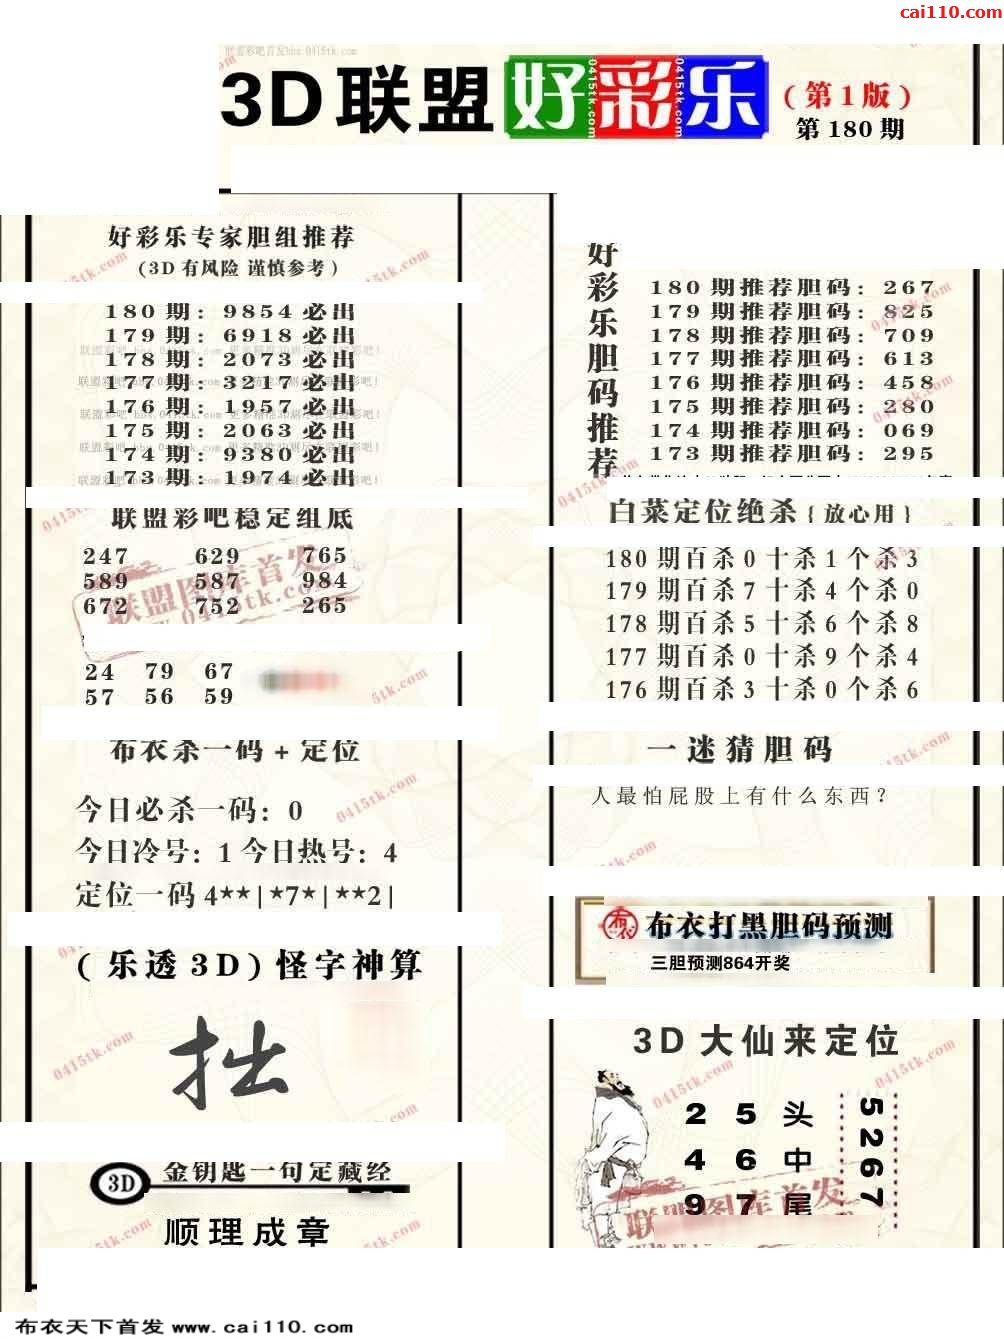 cai110.com
3D联盟好彩乐
(第1版)
第180期
好彩乐专家胆组推荐
(3D有风险 谨慎参考)
180期: 9854必出
179期: 6918必出
178期: 2073必出
177期: 3217必出
176期: 1957必出
175期: 2063必出
174期: 9380必出
173期: 1974必出
联盟彩吧稳定组底
247 629 765
589 587 984
672 752 265
24 79 67
57 56 59
布衣杀一码+定位
今日必杀一码: 0
今日冷号: 1 今日热号: 4
定位一码 4**|*7*|**2|
(乐透3D)怪字神算
拙
3D 金钥匙一句定藏经
顺理成章
好彩乐胆码推荐
180期推荐胆码: 267
179期推荐胆码: 825
178期推荐胆码: 709
177期推荐胆码: 613
176期推荐胆码: 458
175期推荐胆码: 280
174期推荐胆码: 069
173期推荐胆码: 295
白菜定位绝杀{放心用}
180期百杀0十杀1个杀3
179期百杀7十杀4个杀0
178期百杀5十杀6个杀8
177期百杀0十杀9个杀4
176期百杀3十杀0个杀6
一迷猜胆码
人最怕屁股上有什么东西?
布衣打黑胆码预测
三胆预测864开奖
3D大仙来定位
2 5 头
4 6 中
9 7 尾
5267
联盟图库首发
0415tk.com
布衣天下首发 www.cai110.com